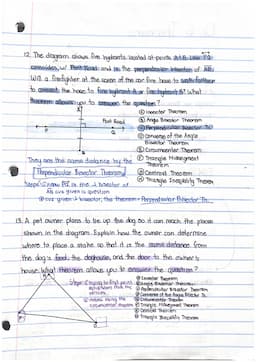 12. The diagram shows fire hydrants located at points A & B. Line PQ
coincides w/ Post Road and is the perpendicular bisector of AB.
Will a firefighter at the scene of the fire have to
to connect the hose to fire hydrant A or fire hydrant B? What
theorem allows you to answer the question?
① Incenter Theorem
② Angle Bisector Theorem
③ Perpendicular Bisector Th.
④ Converse of the Angle
Bisector Theorem
⑤ Circumcenter Theorem
⑥ Triangle Midsegment
Theorem
⑦ Centroid Theorem
⑧ Triangle Inequality Theorem
Post Road
P
Q
They are the same distance by the
Perpendicular Bisector Theorem
Steps: ① Know PQ is the ⊥ bisector of
AB cus given in question
② cus given ⊥ bisector, the theorem = Perpendicular Bisector Th.
13. A pet owner plans to tie up the dog so it can reach the places
shown in the diagram. Explain how the owner can determine
where to place a stake so that it is the same distance from
the dog's food, the doghouse, and the door to the owner's
house. What theorem allows you to answer the question?
① Incenter Theorem
② Angle Bisector Theorem
③ Perpendicular Bisector Theorem
④ Converse of the Angle Bisector Th.
⑤ Circumcenter Theorem
⑥ Triangle Midsegment Theorem
⑦ Centroid Theorem
⑧ Triangle Inequality Theorem